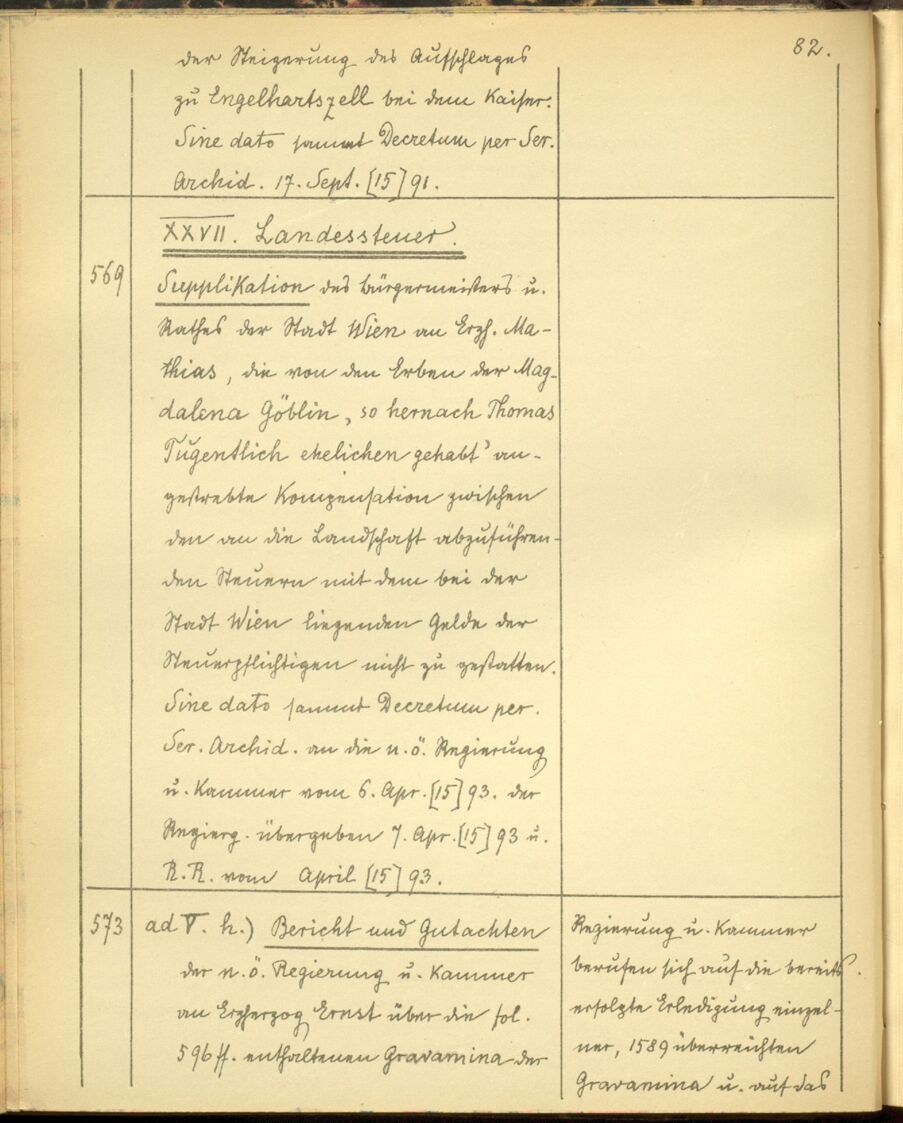 82.
der Steigerung des Aufschlages
zu Engelhartszell bei dem Kaiser.
Sine dato sammt Decretum per Ser.
Archid. 17. Sept. [15]91.
XXVII. Landessteuer.
569
Supplikation des Bürgermeisters u.
Rathes der Stadt Wien an Erzh. Ma-
thias, die von den Erben der Mag-
dalena Göblin, „so hernach Thomas
Tugentlich ehelichen gehabt" an-
gestrebte Kompensation zwischen
den an die Landschaft abzuführen-
den Steuern mit dem bei der
Stadt Wien liegenden Gelde der
Steuerpflichtigen nicht zu gestatten.
Sine dato sammt Decretum per.
Ser. Archid. an die n. ö. Regierung
u. Kammer vom 6. Apr. [15]93. der
Regierg. übergeben 7. Apr. [15]93 u.
R. R. vom April [15]93.
573
ad V. h.) Bericht und Gutachten
der n. ö. Regierung u. Kammer
an Erzherzog Ernst über die fol.
596 ff. enthaltenen Gravamina der
Regierung u. Kammer
berufen sich auf die bereits
erfolgte Erledigung einzel-
ner, 1589 überreichten
Gravamina u. auf das